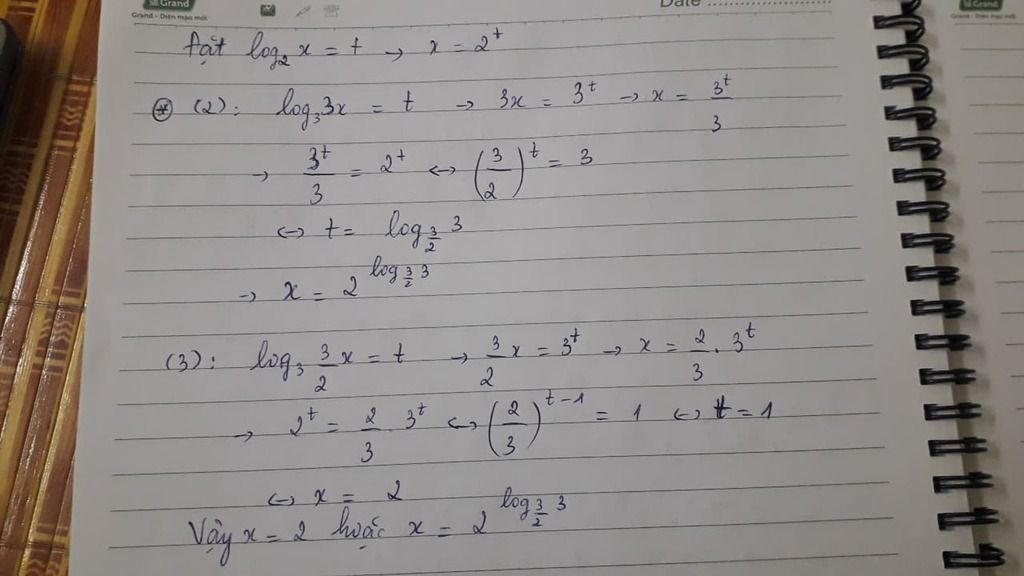 Grand
Grand - Diện mạo mới
Date
Grand
Đặt log₂ x = t → x = 2ᵗ
⊛ (2): log₃ 3x = t → 3x = 3ᵗ → x = 3ᵗ/3
→ 3ᵗ/3 = 2ᵗ ↔ (3/2)ᵗ = 3
↔ t = log_{3/2} 3
→ x = 2^{log_{3/2} 3}
(3): log₃ 3/2 x = t → 3/2 x = 3ᵗ → x = 2/3 . 3ᵗ
→ 2ᵗ = 2/3 . 3ᵗ ↔ (2/3)^{t-1} = 1 ↔ t = 1
↔ x = 2
Vậy x = 2 hoặc x = 2^{log_{3/2} 3}